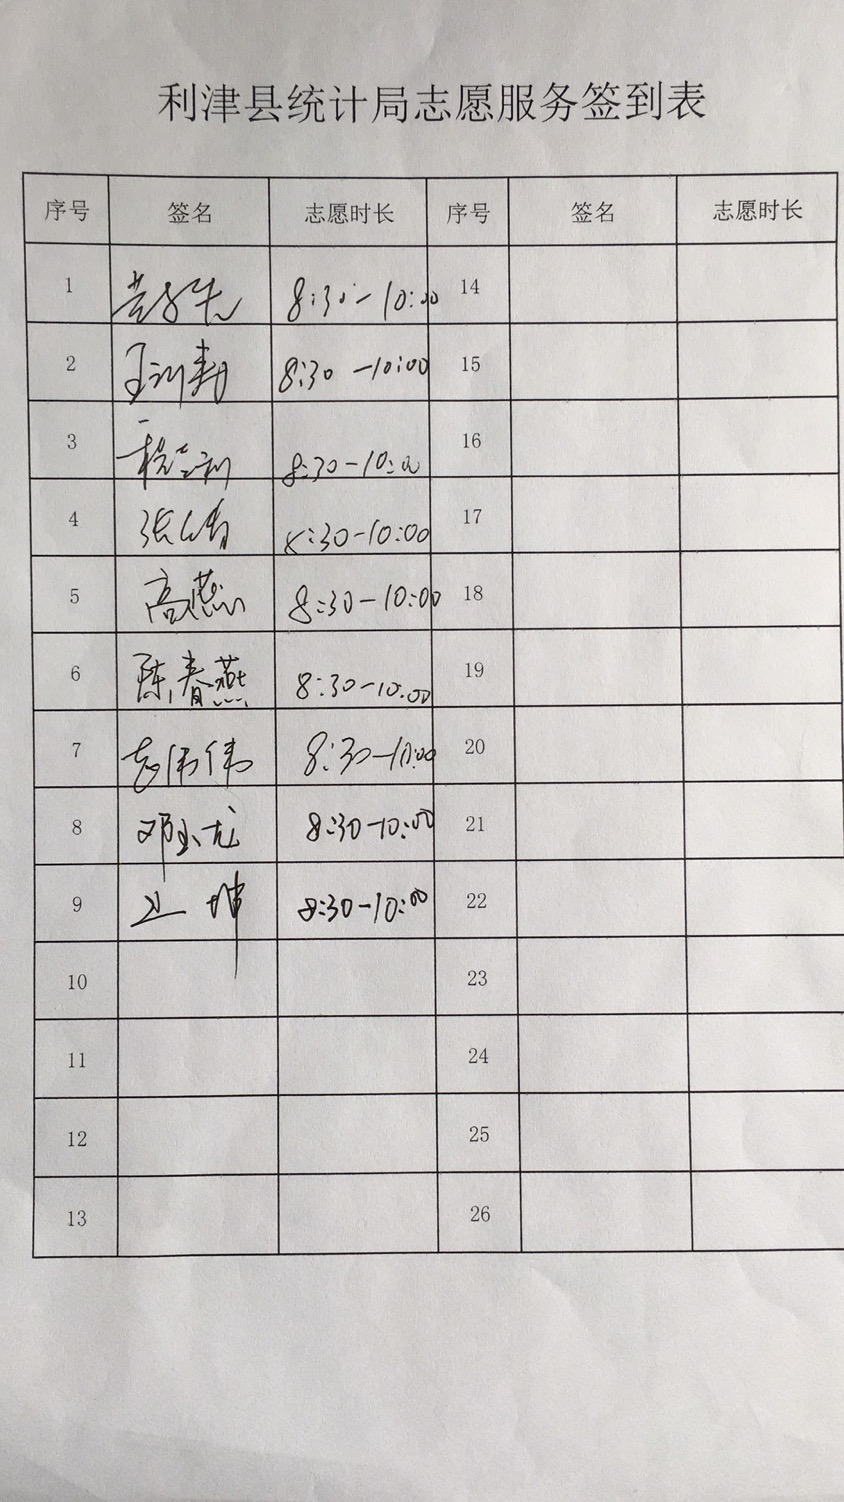 利津县统计局志愿服务签到表
序号 签名 志愿时长 序号 签名 志愿时长
1 8:30-10:00 14
2 8:30-10:00 15
3 8:30-10:00 16
4 张倩 8:30-10:00 17
5 高燕 8:30-10:00 18
6 陈春燕 8:30-10:00 19
7 赵伟伟 8:30-10:00 20
8 邓玉龙 8:30-10:00 21
9 坤 8:30-10:00 22
10 23
11 24
12 25
13 26